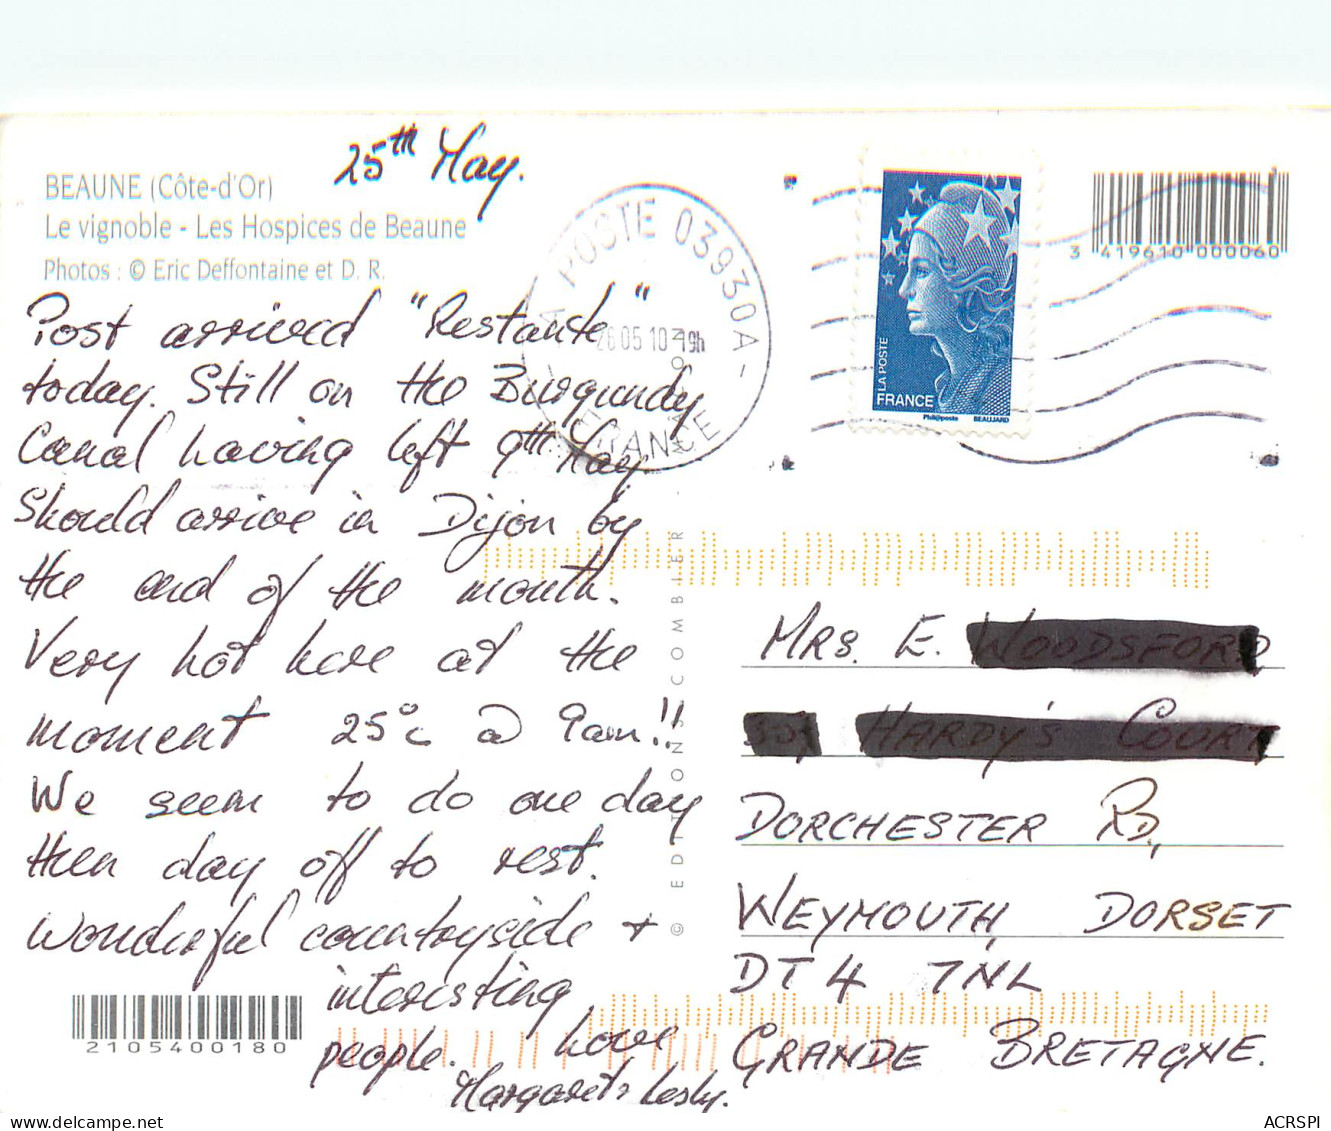 25th May.
BEAUNE (Côte-d'Or)
Le vignoble - Les Hospices de Beaune
Photos : © Eric Deffontaine et D. R.
Post arrived "Restante"
today. Still on the Burgundy
Canal having left 9th May
Should arrive in Dijon by
the end of the month.
Very hot here at the
moment 25°c @ 9am!!
We seem to do one day
then day off to rest.
Wonderful countryside +
interesting
people. Love
Margaret & Lesly.
2105400180
© EDITIONS COMBIER
LA POSTE 03930A
26 05 10 19h
FRANCE
LA POSTE
FRANCE
Phil@poste BEAUJARD
3 419610 000060
MRS. E.
DORCHESTER RD,
WEYMOUTH, DORSET
DT4 7NL
GRANDE BRETAGNE.
ACRSPI